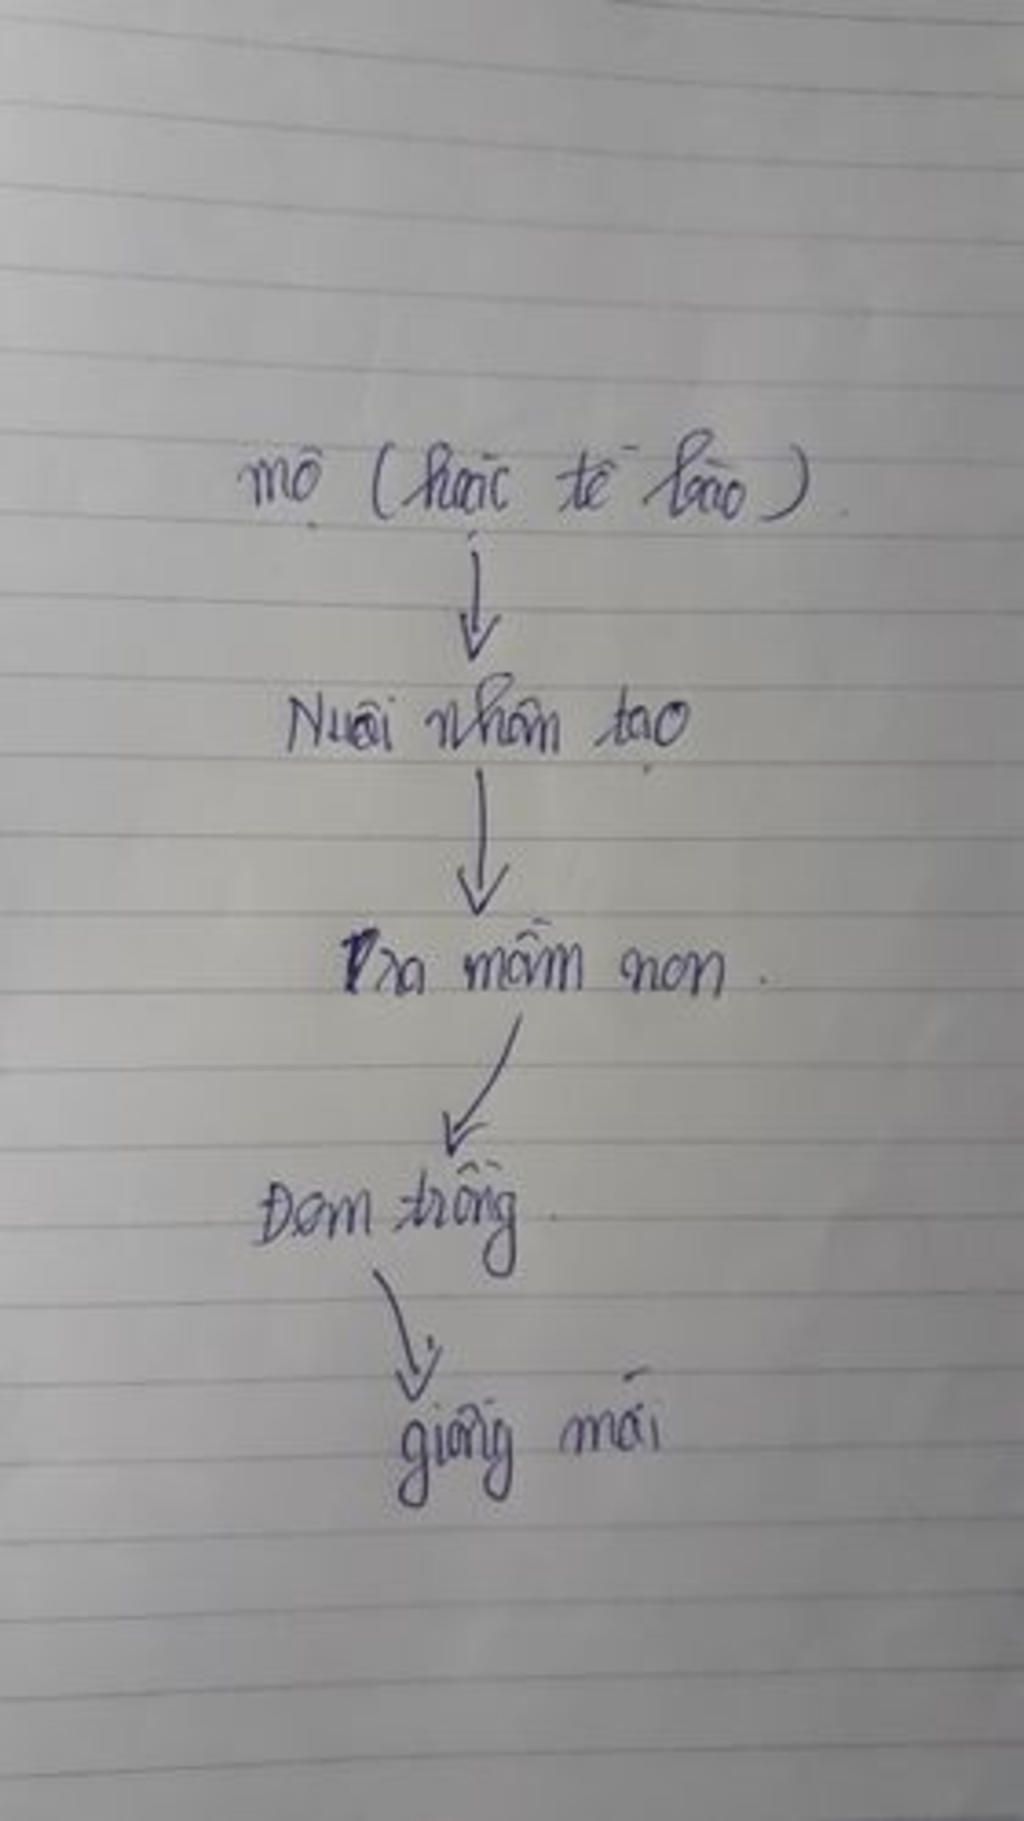 mô (hoặc tế bào)
Nuôi nhân tạo
ra mầm non.
Đem trồng.
giống mới